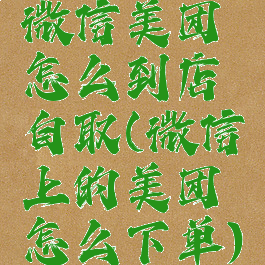 微信美团
怎么到店
自取(微信
上的美团
怎么下单)